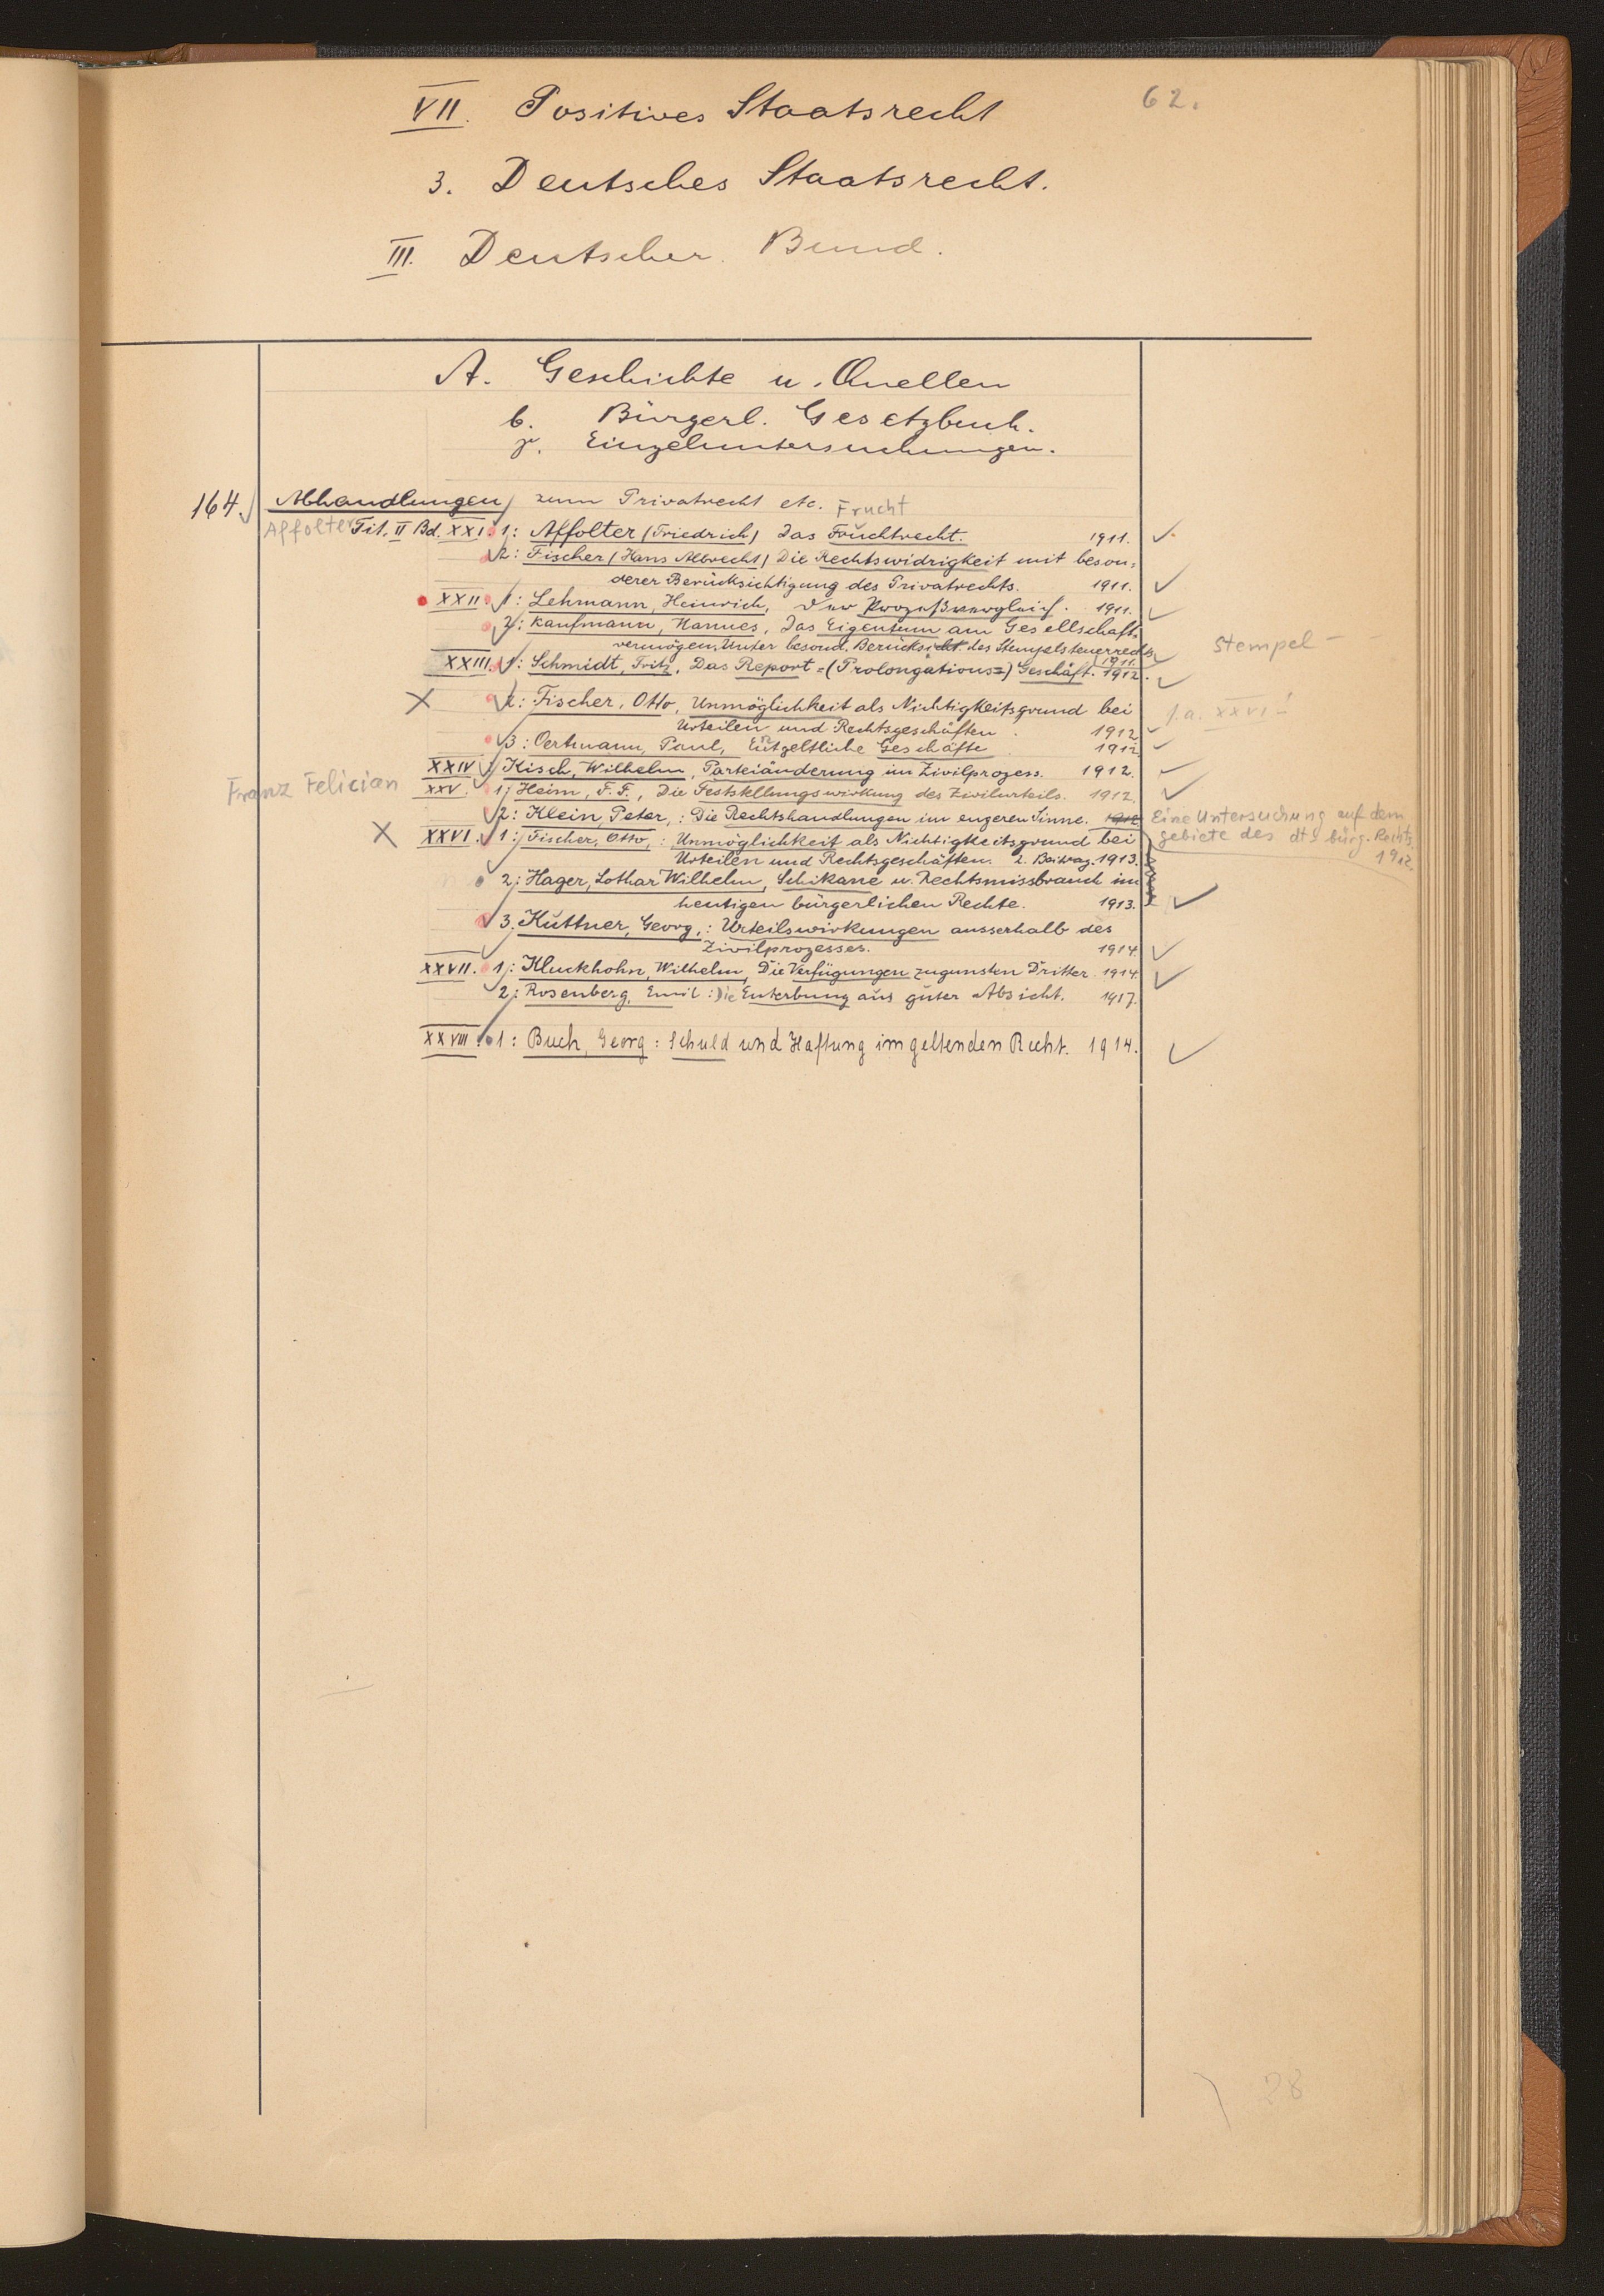 62.
VII. Positives Staatsrecht
3. Deutsches Staatsrecht.
III. Deutscher Bund.
A. Geschichte u. Quellen
b. Bürgerl. Gesetzbuch.
γ. Einzeluntersuchungen.
164. Abhandlungen zum Privatrecht etc. Frucht
Affolter Tit. II Bd. XXI. 1: Affolter (Friedrich) Das Fruchtrecht. 1911.
2: Fischer (Hans Albrecht) Die Rechtswidrigkeit mit beson-
derer Berücksichtigung des Privatrechts. 1911.
XXII 1: Lehmann, Heinrich, Der Prozeßvergleich. 1911.
2: Kaufmann, Hannes, Das Eigentum am Gesellschafts-
vermögen. Unter besond. Berücksicht. des Stempelsteuerrechts 1911. Stempel-
XXIII. 1: Schmidt, Fritz, Das Report-(Prolongations-) Geschäft. 1912.
2: Fischer, Otto, Unmöglichkeit als Nichtigkeitsgrund bei s. a. XXVI
Urteilen und Rechtsgeschäften. 1912
3: Oertmann, Paul, Entgeltliche Geschäfte 1912
XXIV Kisch, Wilhelm, Parteiänderung im Zivilprozess. 1912.
Franz Felician XXV. 1: Heim, F. F., Die Feststellungswirkung des Zivilurteils. 1912.
2: Klein, Peter,: Die Rechtshandlungen im engeren Sinne. 1912 Eine Untersuchung auf dem
gebiete des dt. bürg. Rechts.
1912
XXVI. 1: Fischer, Otto,: Unmöglichkeit als Nichtigkeitsgrund bei
Urteilen und Rechtsgeschäften. 2. Beitrag. 1913.
2: Hager, Lothar Wilhelm, Schikane u. Rechtsmissbrauch im
heutigen bürgerlichen Rechte. 1913.
3. Kuttner, Georg,: Urteilswirkungen ausserhalb des
Zivilprozesses. 1914
XXVII. 1: Kluckhohn, Wilhelm, Die Verfügungen zugunsten Dritter. 1914
2: Rosenberg, Emil: Die Enterbung aus guter Absicht. 1917.
XXVIII. 1: Buch, Georg: Schuld und Haftung im geltenden Recht. 1914.
28